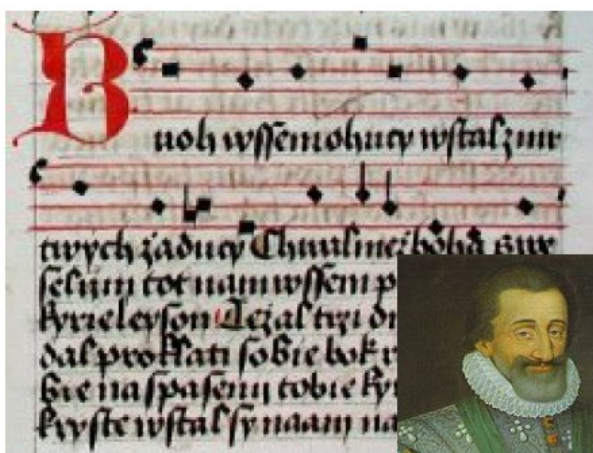 Buoh wſſemohucy wſtal zmr
twych zaducy Chwalmež boha
ſelim tot nam wſſem p
kyrieleyſon Ležal trzi dn
dal proklati ſobie bok r
bie na ſpaſenij tobie ky
kryſte wſtal ſy naam na